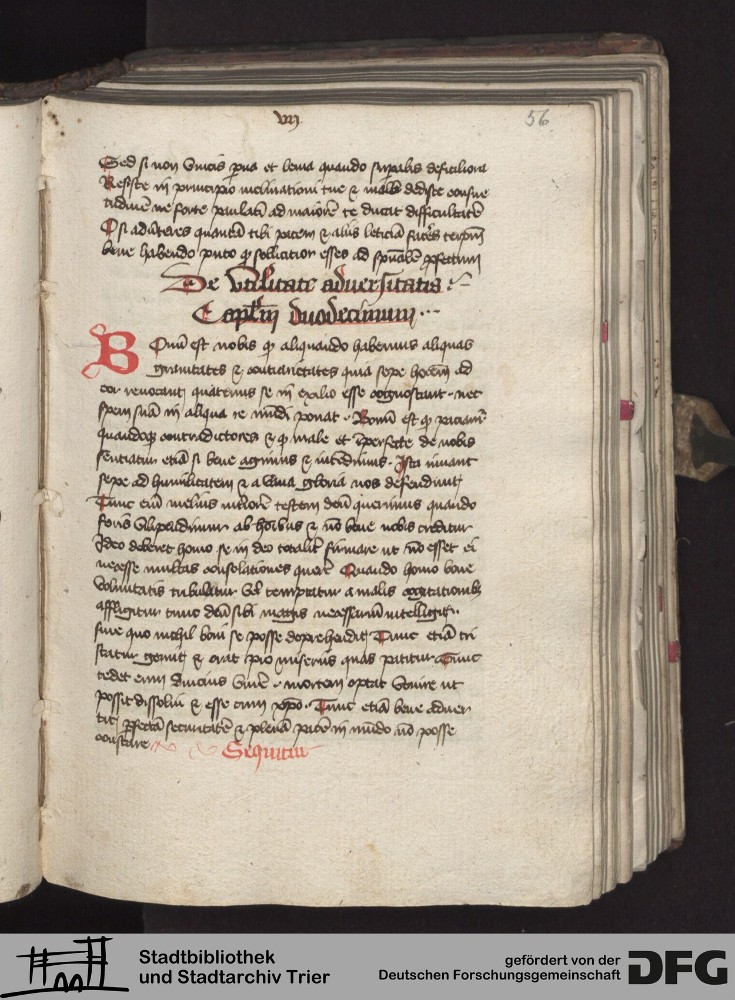 vij
56
Sed si non vincis parua et leuia quando superabis deficiliora
Resiste in principio inclinationi tue et malam dediste consue
tudinem ne forte paulatim ad maiorem te ducat difficultatem
O si aduerteres quantam tibi pacem et aliis leticiam faceres teipsum
bene habendo puto quod sollicitior esses ad spiritualem profectum
De vtilitate aduersitatis
Capitulum duodecimum
Bonum est nobis quod aliquando habemus aliquas
grauitates et contrarietates quia sepe hominem ad
cor reuocant quatenus se in exilio esse cognoscant nec
spem suam in aliqua re mundi ponat. Bonum est quod paciamur
quandoque contradictores et quod male et imperfecte de nobis
senciatur etiam si bene agimus et intendimus. Ista iuuant
sepe ad humilitatem et a vana gloria nos defendunt
Tunc enim melius interiorem testem deum querimus quando
foris vilipendimur ab hominibus et non bene nobis creditur
Ideo deberet homo se in deo totaliter firmare ut non esset ei
necesse multas consolationes querere Quando homo bone
voluntatis tribulatur vel temptatur a malis cogitationibus
affligitur tunc deum sibi magis necessarium intelligit
sine quo nichil boni se posse deprehendit Tunc etiam tri
statur gemit et orat pro miseriis quas patitur Tunc
tedet eum diucius viuere mortem optat venire ut
possit dissolui et esse cum christo. Tunc etiam bene aduer
tit perfectam securitatem et plenam pacem in mundo non posse
constare
Sequitur
Stadtbibliothek
und Stadtarchiv Trier
gefördert von der
Deutschen Forschungsgemeinschaft
DFG